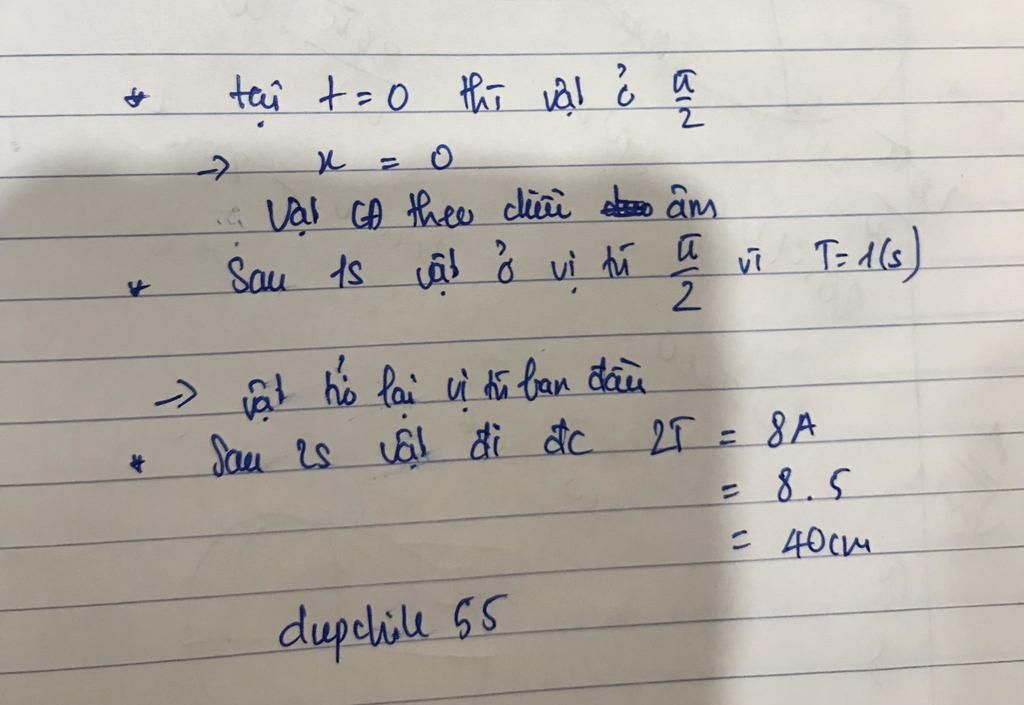 * tại t = 0 thì vật ở π/2
→ x = 0
Vật CĐ theo chiều âm
* Sau 1s vật ở vị trí π/2 vì T = 1(s)
→ vật trở lại vị trí ban đầu
* Sau 2s vật đi đc 2T = 8A
= 8.5
= 40cm
55